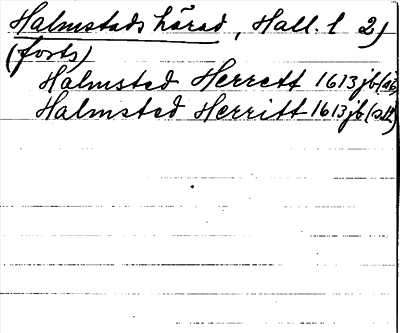 Halmstads härad, Hall. l 2)
(forts)
Halmsted Herrett 1613 jb
Halmsted Herritt 1613 jb